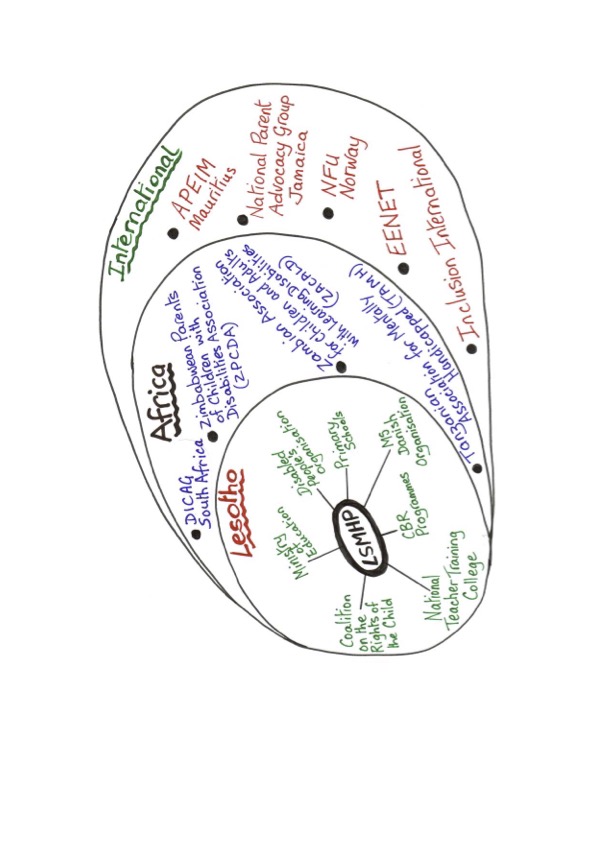 International
APEIM
Mauritius
National Parent
Advocacy Group
Jamaica
NFU
Norway
EENET
Inclusion International
Africa
DICAG
South Africa
Zimbabwean Parents
of Children with
Disabilities Association
(ZPCDA)
Zambian Association
for Children and Adults
with Learning Disabilities
(ZACALD)
Tanzanian
Association for Mentally
Handicapped (TAMH)
Lesotho
LSMHP
Ministry
of
Education
Disabled
People's
Organisation
Primary
Schools
MS
Danish
Organisation
CBR
Programmes
National
Teacher Training
College
Coalition
on the
Rights of
the Child